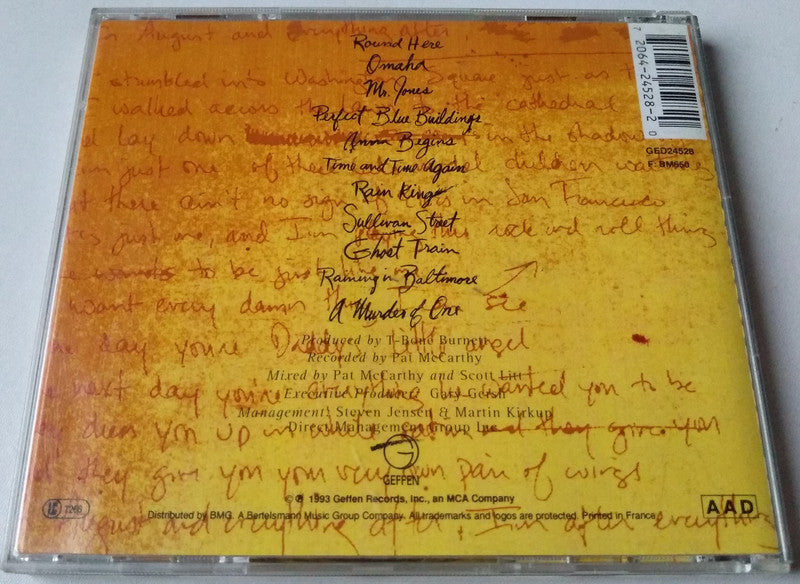 August and everything after
stumbled into Washington Square just as
walked across the the cathedral
lay down in the shadow
just one of these children
there ain't no sign of in San Francisco
just me, and I'm this rock and roll thing
wants to be just
want every damn thing see
day you're Daddy's little angel
next day you're wanted you to be
dress you up in and they give you
they give you your very own pair of wings
August and everything after, I'm after everything
Round Here
Omaha
Mr. Jones
Perfect Blue Buildings
Anna Begins
Time and Time Again
Rain King
Sullivan Street
Ghost Train
Raining in Baltimore
A Murder of One
Produced by T-Bone Burnett
Recorded by Pat McCarthy
Mixed by Pat McCarthy and Scott Litt
Executive Producer: Gary Gersh
Management: Steven Jensen & Martin Kirkup
Direct Management Group Inc.
G
GEFFEN
© ℗ 1993 Geffen Records, Inc., an MCA Company
Distributed by BMG. A Bertelsmann Music Group Company. All trademarks and logos are protected. Printed in France.
LC 7266
AAD
7 20642-4528-2 0
GED24528
F: BM650